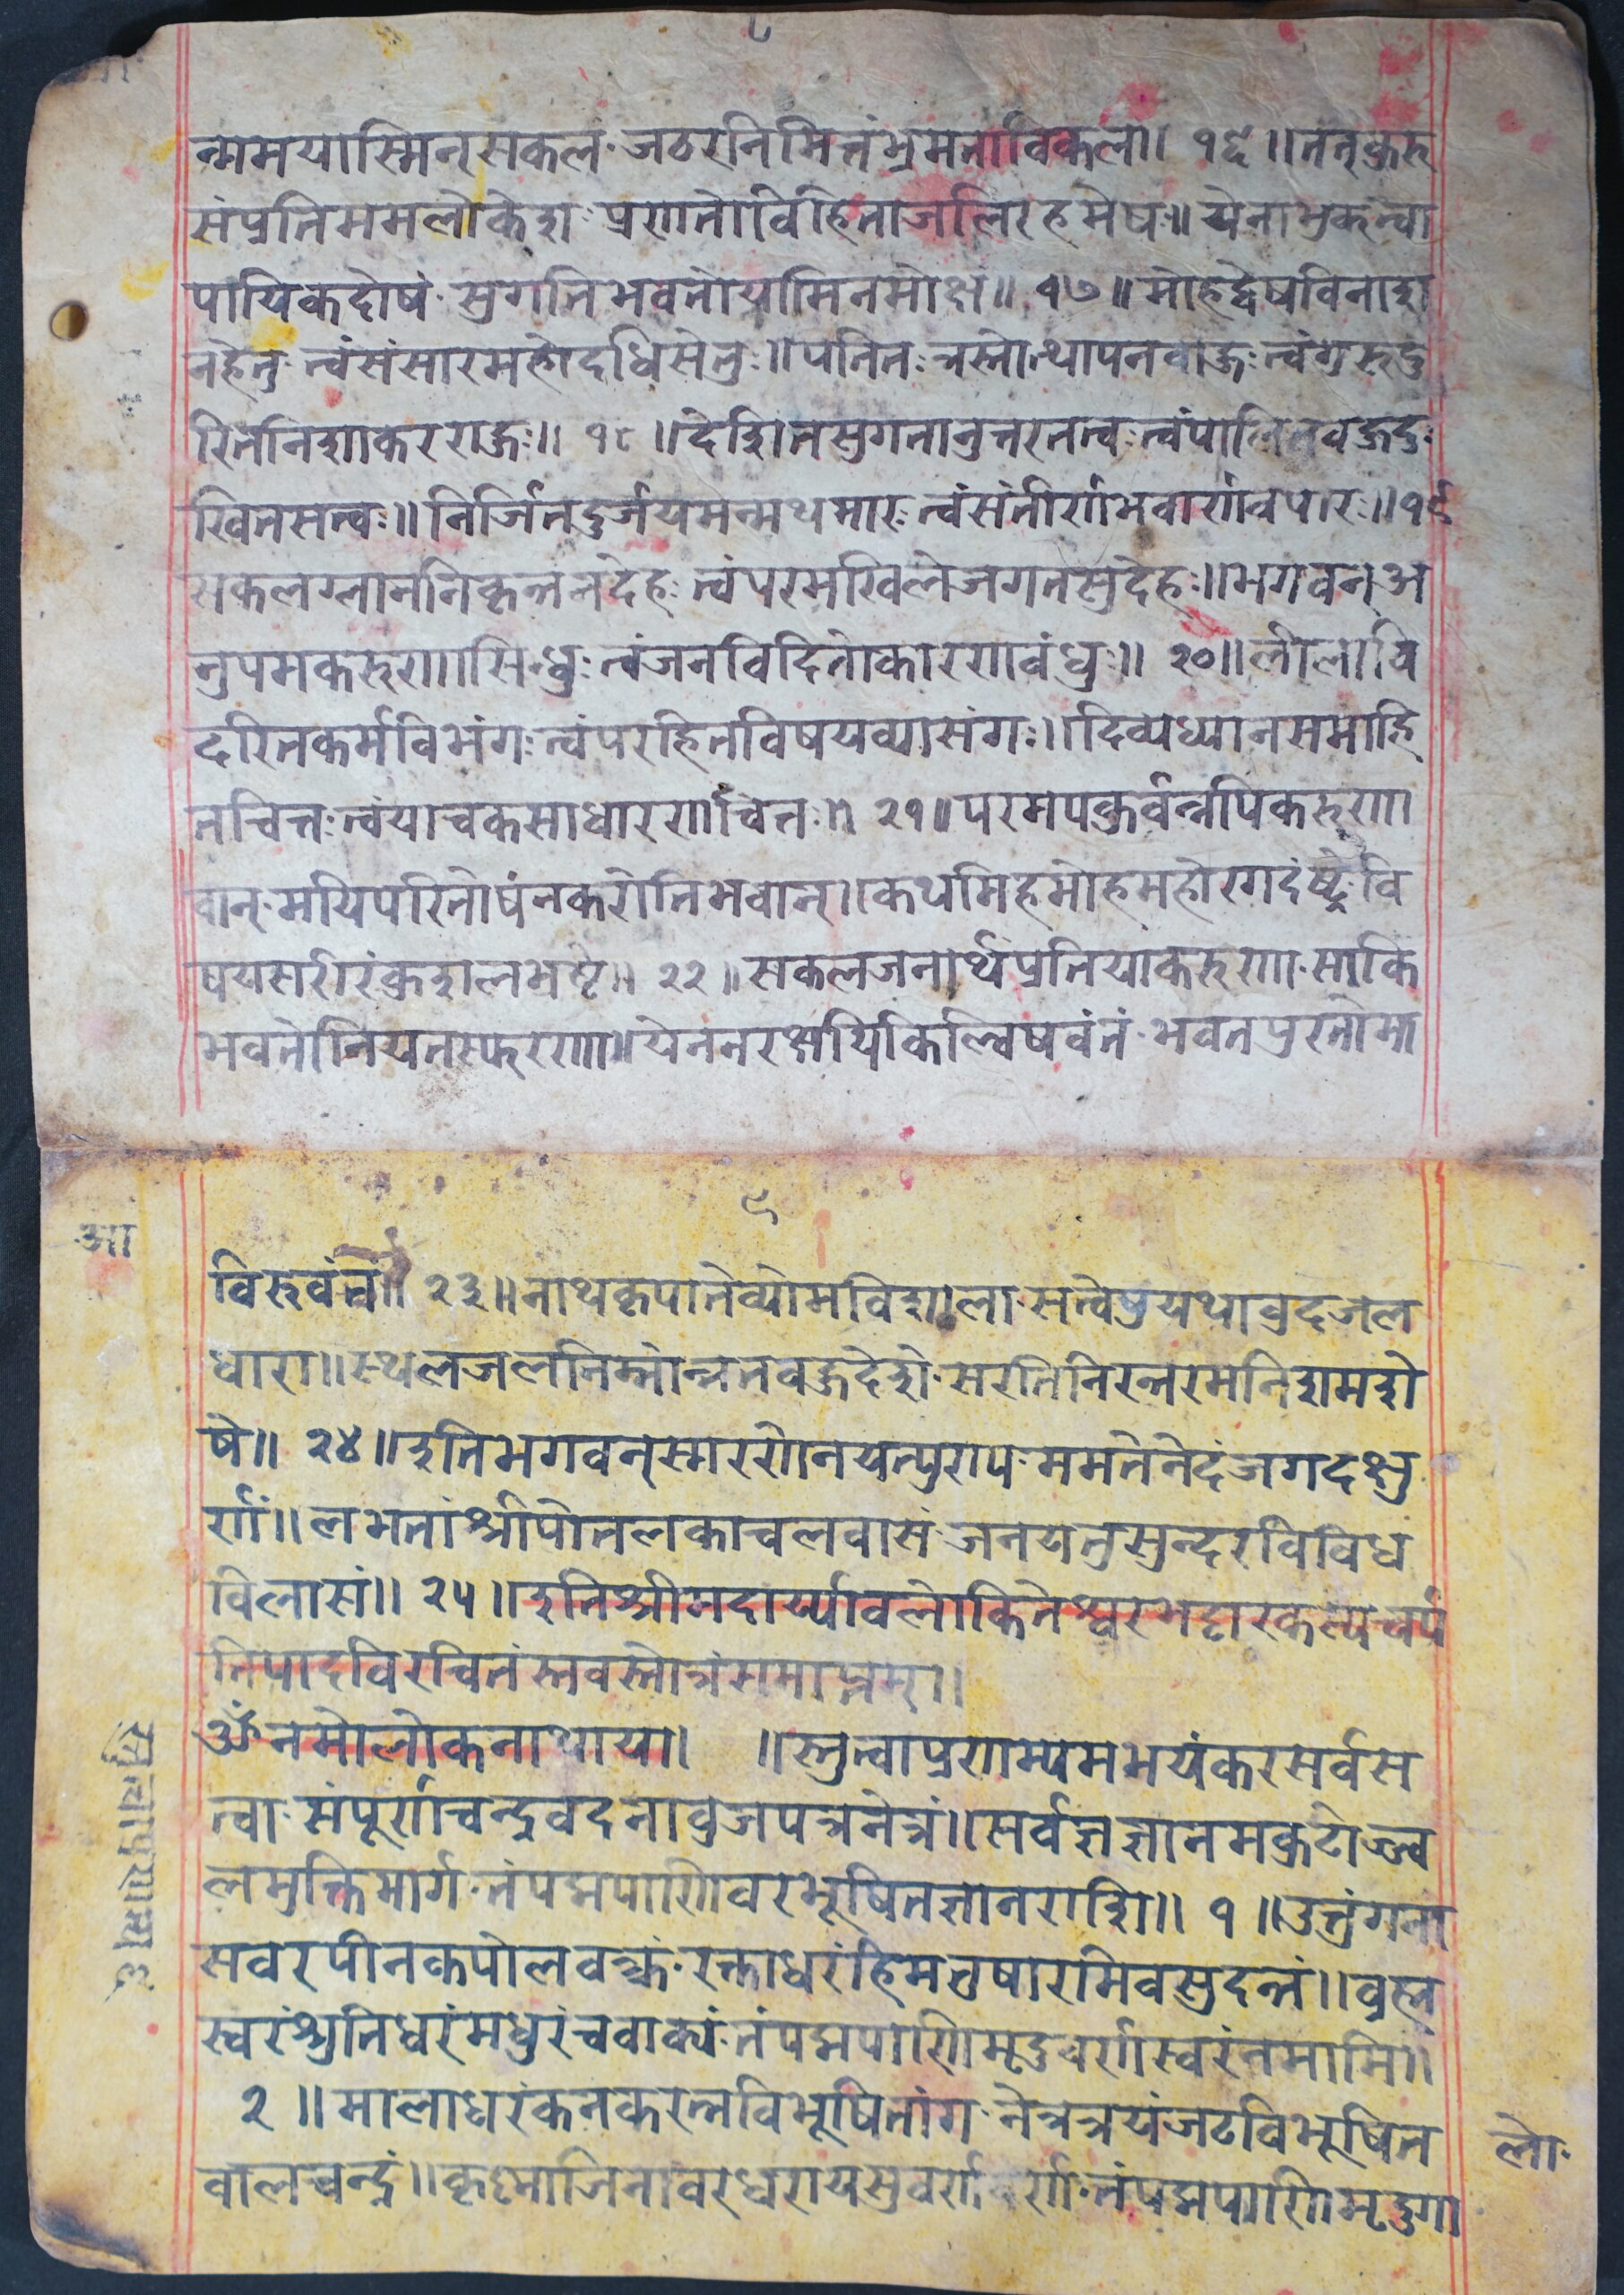 ८
न्ममयास्मिन्सकलं जठरनिमित्तंभ्रमताविकलं॥ १६ ॥तत्कुरु
संप्रतिममलोकेश प्रणतोविहिताजलिरहमेषः॥ येनाभुक्त्वा
पायिकदोषं सुगतिभवतोयामिनमोक्षं॥ १७ ॥ मोहद्वेषविनाश
नहेतु त्वंसंसारमहोदधिसेतुः॥पतित त्रस्तोत्थापनवाहुः त्वंगुरुदु
रितनिशाकरराहुः॥ १८ ॥देशितसुगतानुत्तरतत्वः त्वंपालितवहुदुः
खितसत्वः॥ निर्जितदुर्जयमन्मथमारः त्वंसंतीर्णभवार्णवपारः॥ १९
सकलग्लाननिकृन्तनदेहः त्वंपरमखिलजगतसुदेहः॥भगवन्अ
नुपमकरुणासिन्धुः त्वंजनविदिताकारणवंधुः॥ २०॥लीलावि
दरितकर्मविभंगः त्वंपरहितविषयव्यासंगः॥दिव्यध्यानसमाहि
तचित्तः त्वंयाचकसाधारणचित्तः॥ २१॥परमपकुर्वन्नपिकरुणा
वान् मयिपरितोषंनकरोतिभवान्॥कथमिहमोहमहोरगदंष्ट्रे वि
षयसरीरंकुशलभ्रष्टे॥ २२ ॥सकलजनार्थप्रतियाकरुणा साकिं
भवतोनियतस्फरणा॥येननरक्षयिकिल्विषवंतं भवतप्ररतोमा
९
आ
विरुवंतं॥ २३॥नाथकृपातेव्योमविशाला सत्वेषुयथावुदजल
धारा॥स्थलजलनिम्नोन्नतवहुदेशे सरतिनिरन्तरमनिशमशे
षे॥ २४॥इतिभगवन्स्मारणेनयत्पुराप ममतेनेदंजगदक्षु
र्णं॥लभतांश्रीपोतलकाचलवासं जनयतुसुन्दरविविध
विलासं॥ २५॥इतिश्रीमदार्य्यावलोकितेश्वरभट्टारकस्यचर्प
तिपादविरचितंस्तवस्तोत्रंसमाप्तम्॥
ॐनमोलोकनाथाय॥ ॥स्तुत्वाप्रणाम्यमभयंकरसर्वस
त्वा संपूर्णचन्द्रवदनावुजपत्रनेत्रं॥सर्वज्ञज्ञानमकुटोज्ज्व
लमुक्तिमार्ग तंपद्मपाणिवरभूषितज्ञानराशि॥ १ ॥उत्तुंगना
सवरपीनकपोलवक्त्रं रक्ताधरंहिमतुषारमिवसुदन्तं॥व्रह्म
स्वरंश्रुतिधरंमधुरंचवाक्यं तंपद्मपाणिमृदुवर्णस्वरंनमामि॥
२ ॥मालाधरंकनकरत्नविभूषितांग नेत्रत्रयंजटविभूषित
वालचन्द्रं॥कृष्णाजिनावरधरायसुवर्णवर्ण तंपद्मपाणिमृदुगा
लो